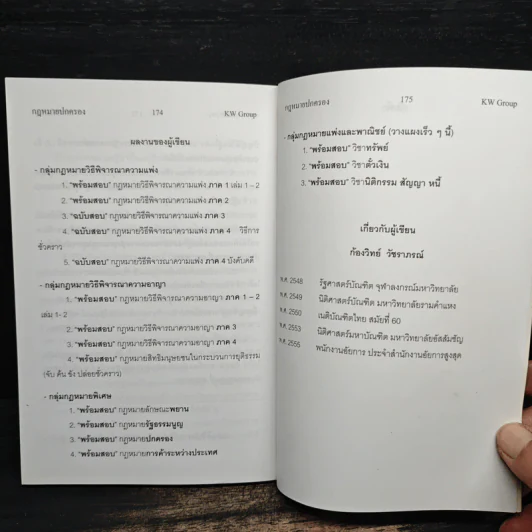 กฎหมายปกครอง 174 KW Group
ผลงานของผู้เขียน
- กลุ่มกฎหมายวิธีพิจารณาความแพ่ง
1. "พร้อมสอบ" กฎหมายวิธีพิจารณาความแพ่ง ภาค 1 เล่ม 1 – 2
2. "พร้อมสอบ" กฎหมายวิธีพิจารณาความแพ่ง ภาค 2
3. "ฉบับสอบ" กฎหมายวิธีพิจารณาความแพ่ง ภาค 3
4. "ฉบับสอบ" กฎหมายวิธีพิจารณาความแพ่ง ภาค 4 วิธีการ
ชั่วคราว
5. "ฉบับสอบ" กฎหมายวิธีพิจารณาความแพ่ง ภาค 4 บังคับคดี
- กลุ่มกฎหมายวิธีพิจารณาความอาญา
1. "พร้อมสอบ" กฎหมายวิธีพิจารณาความอาญา ภาค 1 – 2
เล่ม 1- 2
2. "พร้อมสอบ" กฎหมายวิธีพิจารณาความอาญา ภาค 3
3. "พร้อมสอบ" กฎหมายวิธีพิจารณาความอาญา ภาค 4
4. "พร้อมสอบ" กฎหมายสิทธิมนุษยชนในกระบวนการยุติธรรม
(จับ ค้น ขัง ปล่อยชั่วคราว)
- กลุ่มกฎหมายพิเศษ
1. "พร้อมสอบ" กฎหมายลักษณะพยาน
2. "พร้อมสอบ" กฎหมายรัฐธรรมนูญ
3. "พร้อมสอบ" กฎหมายปกครอง
4. "พร้อมสอบ" กฎหมายการค้าระหว่างประเทศ
กฎหมายปกครอง 175 KW Group
- กลุ่มกฎหมายแพ่งและพาณิชย์ (วางแผงเร็ว ๆ นี้)
1. "พร้อมสอบ" วิชาทรัพย์
2. "พร้อมสอบ" วิชาตั๋วเงิน
3. "พร้อมสอบ" วิชานิติกรรม สัญญา หนี้
เกี่ยวกับผู้เขียน
ก้องวิทย์ วัชราภรณ์
พ.ศ. 2548 รัฐศาสตร์บัณฑิต จุฬาลงกรณ์มหาวิทยาลัย
พ.ศ. 2549 นิติศาสตร์บัณฑิต มหาวิทยาลัยรามคำแหง
พ.ศ. 2550 เนติบัณฑิตไทย สมัยที่ 60
พ.ศ. 2553 นิติศาสตร์มหาบัณฑิต มหาวิทยาลัยอัสสัมชัญ
พ.ศ. 2555 พนักงานอัยการ ประจำสำนักงานอัยการสูงสุด